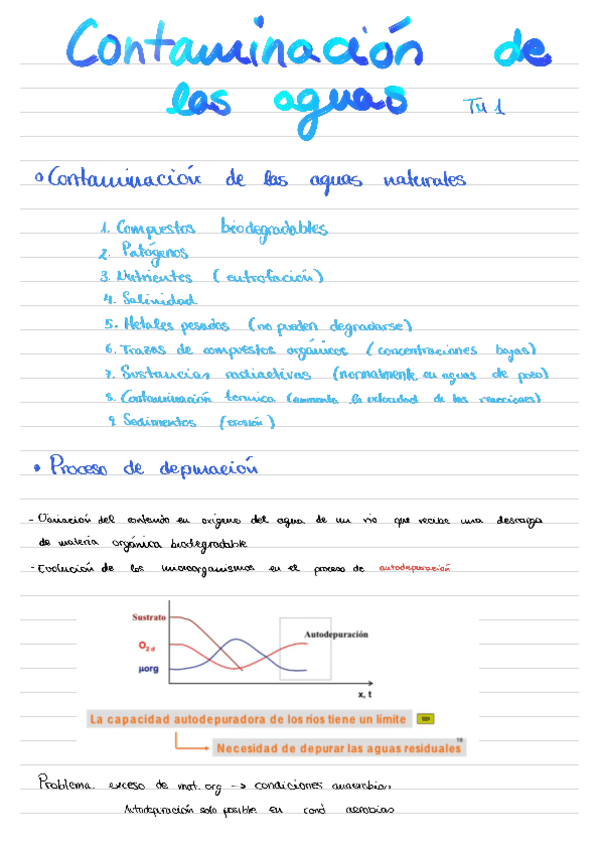 Contaminación de
las aguas TM 1
Contaminación de las aguas naturales
1. Compuestos biodegradables
2. Patógenos
3. Nutrientes (eutrofación)
4. Salinidad
5. Metales pesados (no pueden degradarse)
6. Trazas de compuestos orgánicos (concentraciones bajas)
7. Sustancias radiactivas (normalmente en aguas de pozo)
8. Contaminación termica (aumenta la velocidad de las reacciones)
9. Sedimentos (erosión)
• Proceso de depuración
- Variación del contenido en oxígeno del agua de un rio que recibe una descarga
de materia orgánica biodegradable
- Evolución de los microorganismos en el proceso de autodepuración
Sustrato
Autodepuración
O2 d
µorg
x, t
La capacidad autodepuradora de los ríos tiene un límite
Necesidad de depurar las aguas residuales
Problema. exceso de mat. org -> condiciones anaerobias
Autodepuración solo posible en cond aerobias